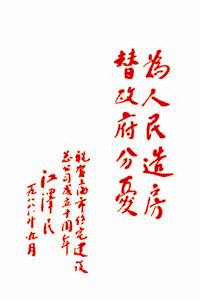 為人民造房
替政府分憂
祝賀上海市住宅建設
总公司成立十周年
江澤民
一九八八年九月